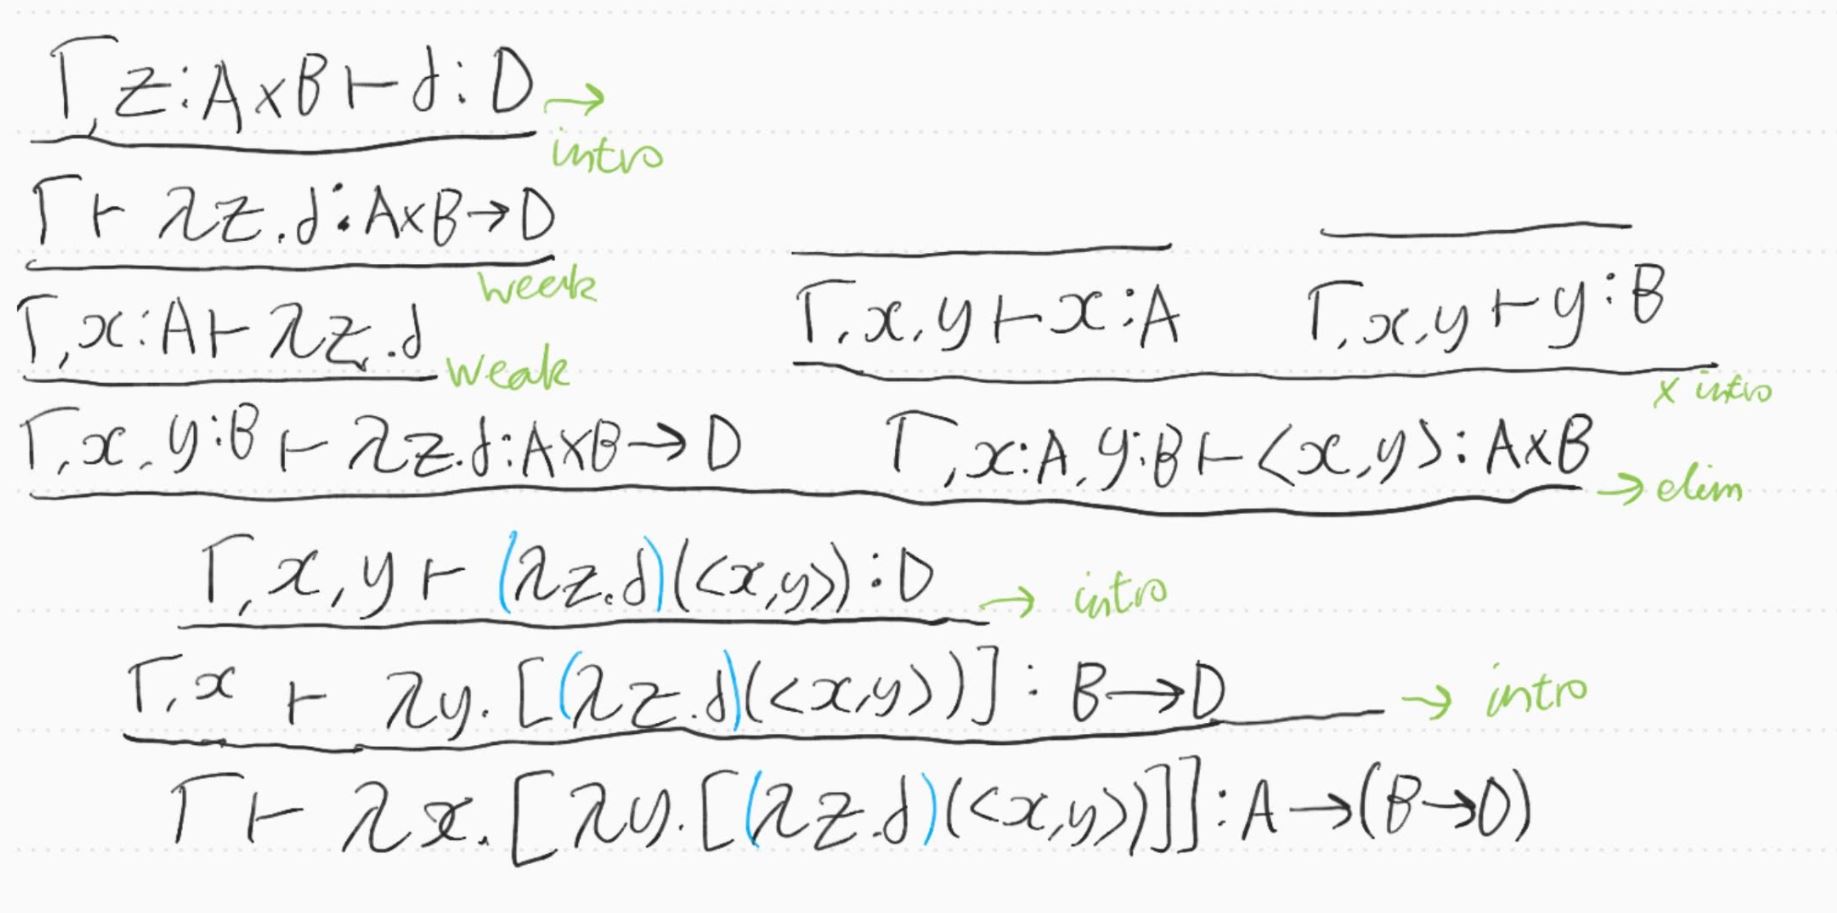 Γ, z:A×B ⊢ d:D → intro
Γ ⊢ λz.d:A×B→D weak
Γ, x:A ⊢ λz.d weak
Γ, x, y ⊢ x:A Γ, x, y ⊢ y:B × intro
Γ, x, y:B ⊢ λz.d:A×B→D Γ, x:A, y:B ⊢ <x,y>:A×B → elim
Γ, x, y ⊢ (λz.d)(<x,y>):D → intro
Γ, x ⊢ λy.[(λz.d)(<x,y>)]:B→D → intro
Γ ⊢ λx.[λy.[(λz.d)(<x,y>)]]:A→(B→D)